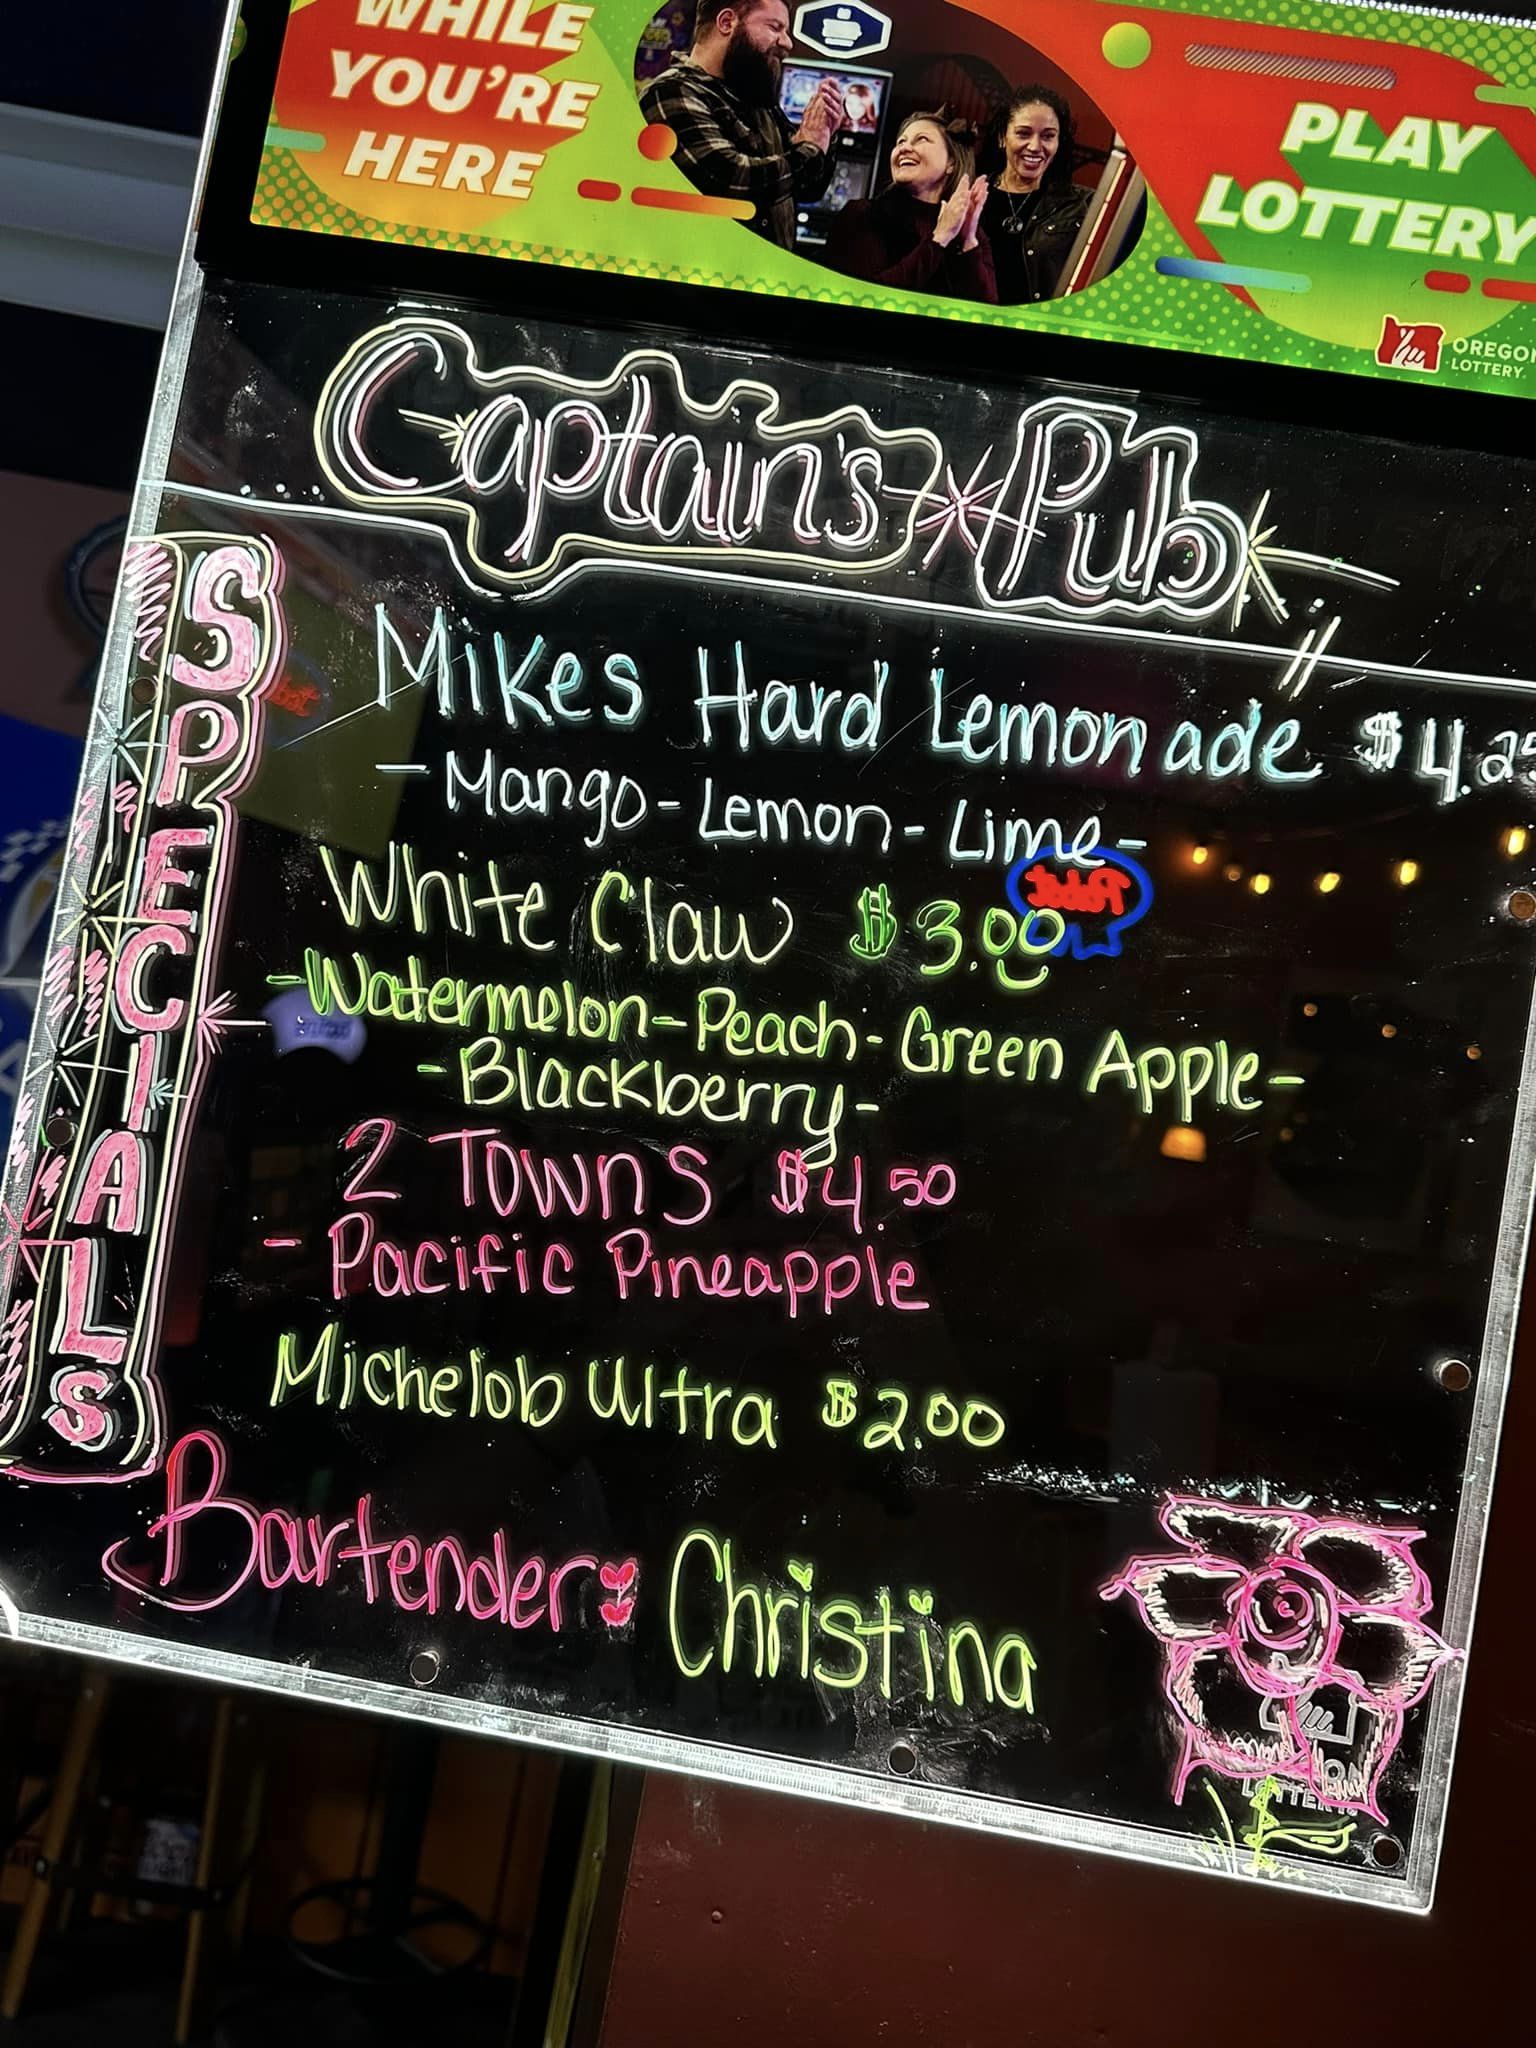 WHILE
YOU'RE
HERE
PLAY
LOTTERY
OREGON
LOTTERY.
Captain's Pub
SPECIALS
Mikes Hard Lemonade $4.25
- Mango - Lemon - Lime -
White Claw $3.00
Pabst
- Watermelon - Peach - Green Apple -
- Blackberry -
2 Towns $4.50
- Pacific Pineapple
Michelob Ultra $2.00
Bartender: Christina
LOTTERY